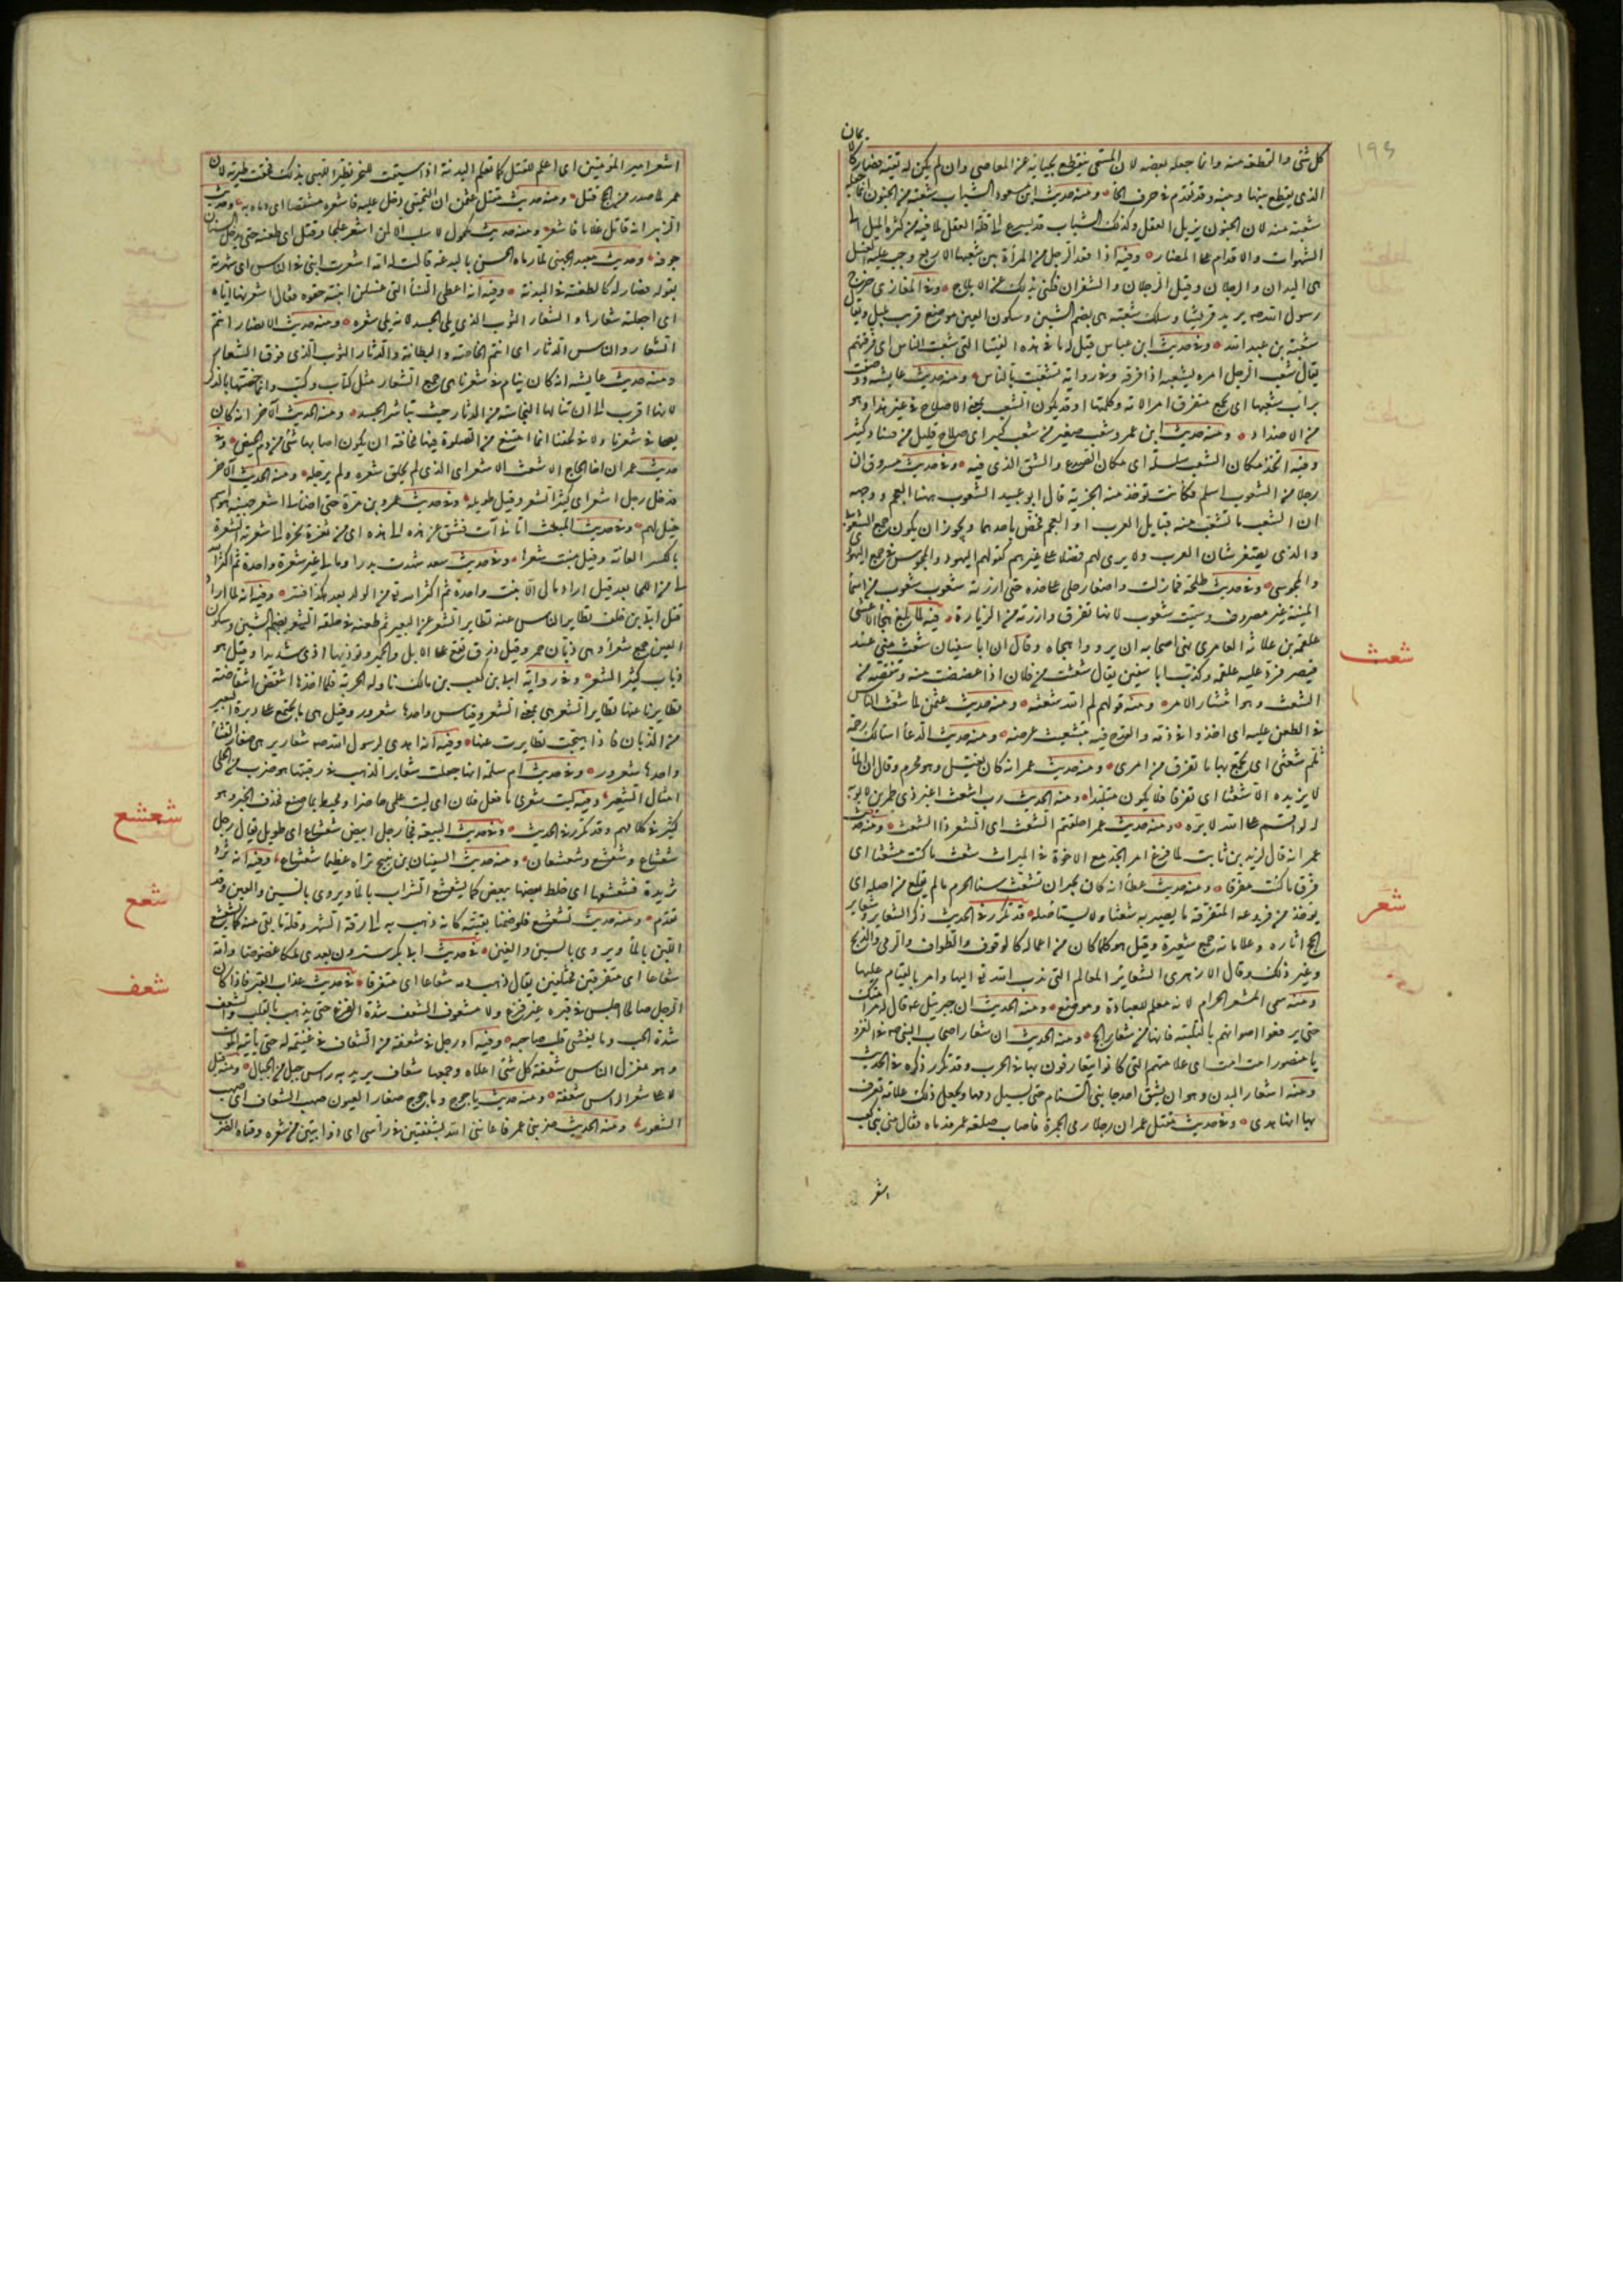 ١٩٤
كل شئ والقطعة منه وانما جعله بعضه لان المستحى ينقطع بحيائه عن المعاصى وان لم يكن له تقية فصار كالايمان
الذى يقطع بينها وبينه وقد تقدم فى حرف الحاء ومنه حديث ابن مسعود الشباب شعبة من الجنون انما جعله
شعبة منه لان الجنون يزيل العقل وكذلك الشباب قد يسرع الى قلة العقل لما فيه من كثرة الميل الى
الشهوات والاقدام على المضار وفيه اذا قعد الرجل من المرأة بين شعبها الاربع وجب عليه الغسل
هى اليدان والرجلان وقيل الرجلان والشفران فكنى بذلك عن الايلاج وفى المغازى خرج
رسول الله صه يريد قريشا وسلك شعبة هى بضم الشين وسكون العين موضع قرب يليل ويقال
شعبة بن عبد الله وفى حديث ابن عباس قيل له ما هذه الفتيا التى شعبت الناس اى فرقتهم
يقال شعب الرجل امره يشعبه اذا فرقه وفى رواية تشعبت بالناس ومنه حديث عايشة ووصفت
يرأب شعبها اى يجمع متفرق امر الامة وكلمتها وقد يكون الشعب بمعنى الاصلاح فى غير هذا وهو
من الاضداد ومنه حديث ابن عمر وشعب صغير من شعب كبير اى صلاح قليل من فساد كثير
وفيه اتخذ مكان الشعب سلسلة اى مكان الصدع والشق الذى فيه وفى حديث مسروق ان
رجلا من الشعوب اسلم فكانت توخذ منه الجزية قال ابو عبيد الشعوب ههنا العجم ووجهه
ان الشعب ما تشعب منه قبايل العرب او العجم فخص باحدهما ويجوز ان يكون جمع الشعوبى
والذى يصغر شان العرب ولا يرى لهم فضلا على غيرهم كقولهم اليهود والمجوس فى جمع اليهودى
والمجوسى وفى حديث طلحة فمازلت واضعا رجلى على خده حتى ازرته شعوب شعوب من اسماء
المنية غير مصروف وسميت شعوب لانها تفرق وازرته من الزيارة
شعث
فيه لما بلغه هجاء الاعشى
علقمة بن علاثة العامرى نهى اصحابه ان يرووا هجاه وقال ان ابا سفيان شعث منى عند
قيصر فرد عليه علقمة وكذب ابا سفين يقال شعثت من فلان اذا غضضت منه وتنقصته من
الشعث وهو انتشار الامر ومنه قولهم لم الله شعثه ومنه حديث عثمن لما شعث الناس
فى الطعن عليه اى اخذوا فى ذمه والقدح فيه بتشعيث عرضه ومنه حديث الدعاء اسالك رحمة
تلم شعثى اى تجمع بها ما تفرق من امرى ومنه حديث عمر انه كان يغتسل وهو محرم وقال ان الماء
لا يزيده الا شعثا اى تفرقا فلا يكون متلبدا ومنه الحديث رب اشعث اغبر ذى طمرين لا يوبه
له لو اقسم على الله لابره ومنه حديث عمر احلقتم الشعث اى الشعر ذا الشعث ومنه حديث
عمر انه قال لزيد بن ثابت لما فرغ امر الجد مع الاخوة فى الميراث شعث ما كنت مشعثا اى
فرق ما كنت مفرقا ومنه حديث عطاء انه كان يجيز ان تشعث سنا الحرم ما لم يقلع من اصله اى
يوخذ من فروعه المتفرقة ما يصير به شعثا ولا يستاصله
شعر
قد تكرر فى الحديث ذكر الشعاير وشعاير
الحج اثاره وعلاماته جمع شعيرة وقيل هو كلما كان من اعماله كالوقوف والطواف والرمى والذبح
وغير ذلك وقال الازهرى الشعاير المعالم التى ندب الله تع اليها وامر بالقيام عليها
ومنه سمى المشعر الحرام لانه معلم للعبادة وموضع ومنه الحديث ان جبرئيل ع قال له مر امتك
حتى يرفعوا اصواتهم بالتلبية فانها من شعاير الحج ومنه الحديث ان شعار اصحاب النبى صه فى الغزو
يا منصور امت امت اى علامتهم التى كانوا يتعارفون بها فى الحرب وقد تكرر ذكره فى الحديث
ومنه اشعار البدن وهو ان يشق احد جانبى السنام حتى يسيل دمها ويجعل ذلك علامة تعرف
بها انها هدى وفى حديث مقتل عمر ان رجلا رمى الجمرة فاصاب صلعة عمر فدماه فقال من بنى لهب
اشعر
اشعر امير المؤمنين اى اعلم للقتل كما تعلم البدنة اذا سيقت للنحر تطير اللهبى بذلك فحقت طيرته لان
عمر لما صدر من الحج قتل ومنه حديث مقتل عثمن ان التجيبى دخل عليه فاشعره مشقصا اى دماه به وحديث
الزبير انه قاتل غلاما فاشعره ومنه حديث مكحول لا سلب الا لمن اشعر علجا او قتل اى طعنه حتى يدخل السنان
جوفه وحديث معبد الجهنى لما رماه الحسن بالبدعة قالت له امه اشعرت ابنى فى الناس اى شهرته
بقولك فصار له كالطعنة فى البدنة وفيه انه اعطى النساء اللتى غسلن ابنته حقوه فقال اشعرنها اياه
اى اجعلنه شعارها والشعار الثوب الذى يلى الجسد لانه يلى شعره ومنه حديث الانصار انتم
الشعار والناس الدثار اى انتم الخاصة والبطانة والدثار الثوب الذى فوق الشعار
ومنه حديث عايشة انه كان ينام فى شعرنا هى جمع الشعار مثل كتاب وكتب وانما خصتها بالذكر
لانها اقرب الى ان تنالها النجاسة من الدثار حيث تباشر الجسد ومنه الحديث الآخر انه كان لا
يصلى فى شعرنا ولا فى لحفنا انما امتنع من الصلوة فيها مخافة ان يكون اصابها شئ من دم الحيض وفى
حديث عمر ان اخا الحاج الاشعث الاشعر اى الذى لم يحلق شعره ولم يرجله ومنه الحديث الآخر
فدخل رجل اشعر اى كثير الشعر وقيل طويله وفى حديث عمرو بن مرة حتى اضاء لى اشعر جهينة هو اسم
جبل لهم وفى حديث المبعث اتانى آت فشق من هذه الى هذه اى من ثغرة نحره الى شعرته الشعرة
بالكسر العانة وقيل منبت شعرها وفى حديث سعد شهدت بدرا وما لى غير شعرة واحدة ثم اكثر الله
لى من اللحا بعد قيل اراد ما لى الا بنت واحدة ثم اكثر الله تع من الولد بعد هكذا فسر وفيه انه لما اراد
قتل ابى بن خلف تطاير الناس عنه تطاير الشعر عن البعير ثم طعنه فى حلقه الشعر بضم الشين وسكون
العين جمع شعراء وهى ذبان حمر وقيل زرق تقع على الابل والحمير وتوذيها اذى شديدا وقيل هو
ذباب كثير الشعر وفى رواية ان كعب بن مالك ناوله الحربة فلما اخذها انتفض انتفاضة
تطايرنا عنها تطاير الشعارير هى بمعنى الشعر وقياس واحدها شعرور وقيل هى ما يجتمع على دبرة البعير
من الذبان فاذا هيجت تطايرت عنها وفيه انه اهدى لرسول الله صه شعارير هى صغار القثاء
واحدها شعرور وفى حديث ام سلمة انها جعلت شعاير الذهب فى رقبتها هو ضرب من الحلى
امثال الشعير وفيه ليت شعرى ما فعل فلان اى ليت علمى حاضر او محيط بما صنع فحذف الخبر وهو
كثير فى كلامهم وقد تكرر فى الحديث
شعشع
وفى حديث البيعة فجاء رجل ابيض شعشاع اى طويل يقال رجل
شعشاع وشعشع وشعشعان ومنه حديث سفيان بن نبيح تراه عظيما شعشاعا وفيه انه ثرد
ثريدة فشعشعها اى خلط بعضها ببعض كما يشعشع الشراب بالماء ويروى بالسين والغين وقد
تقدم ومنه حديث تشعشع فلو صمنا بقيته كانه ذهب به الى رقة الشهر وقلة ما بقى منه كما يشعشع
اللبن بالماء ويروى بالسين والعين
شعع
فى حديث ابى بكر سترون بعدى ملكا عضوضا وامة
شعاعا اى متفرقين مختلفين يقال ذهب دمه شعاعا اى متفرقا
شعف
فى حديث عذاب القبر فاذا كان
الرجل صالحا اجلس فى قبره غير فزع ولا مشعوف الشعف شدة الفزع حتى يذهب بالقلب والشعف
شدة الحب وما يغشى قلب صاحبه وفيه او رجل فى شعفة من الشعاف فى غنيمة له حتى ياتيه الموت
وهو معتزل الناس شعفة كل شئ اعلاه وجمعها شعاف يريد به راس جبل من الجبال ومنه قيل
لاعلى شعر الراس شعفة ومنه حديث ياجوج وماجوج صغار العيون صهب الشعاف اى صهب
الشعور ومنه الحديث ضربنى عمر فاغاثنى الله بشعفتين فى راسى اى ذوابتين من شعره وقتاه الضرب